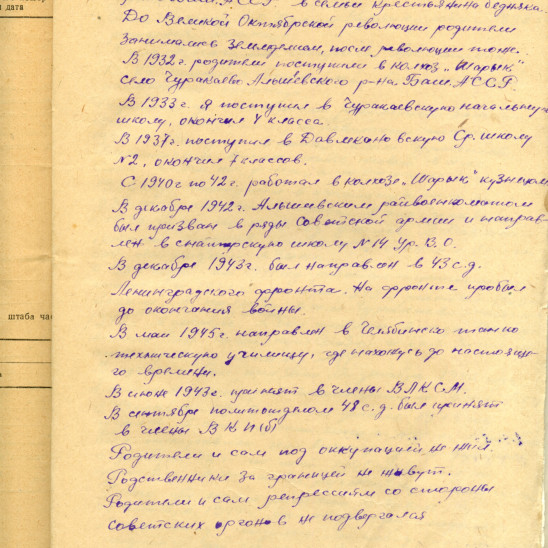 и дата
АССР. в семье крестьянина бедняка.
До Великой Октябрской революции родители
занимались земледелием, после революции тоже.
В 1932г. родители поступили в колхоз „Шарык"
село Чуракаево Альшеевского р-на Баш.АССР.
В 1933г. я поступил в Чуракаевскую начальную
школу, окончил 4 класса.
В 1937г. поступил в Давлекановскую Ср. школу
N2, окончил 7 классов.
С 1940г по 42г. работал в колхозе „Шарык" кузнецом
В декабре 1942г. Альшевским райвоенкоматом
был призван в ряды Советской армии и направ-
лен в снайперскую школу N14 Ур. В.О.
В декабре 1943г. был направлен в 43 с.д.
Ленинградского фронта. На фронте пробыл
до окончания войны.
штаба
В мае 1945г. направлен в Челябинско танко
техническую училищу, где нахожусь до настояще-
го времени.
В июне 1943г. принят в члены ВЛКСМ.
В сентябре политотделом 48 с.д. был принят
в члены ВКП(б)
Родители и сам под оккупацией не жил.
Родственники за границей не живут.
Родители и сам репрессиям со стороны
советских органов не подвергался